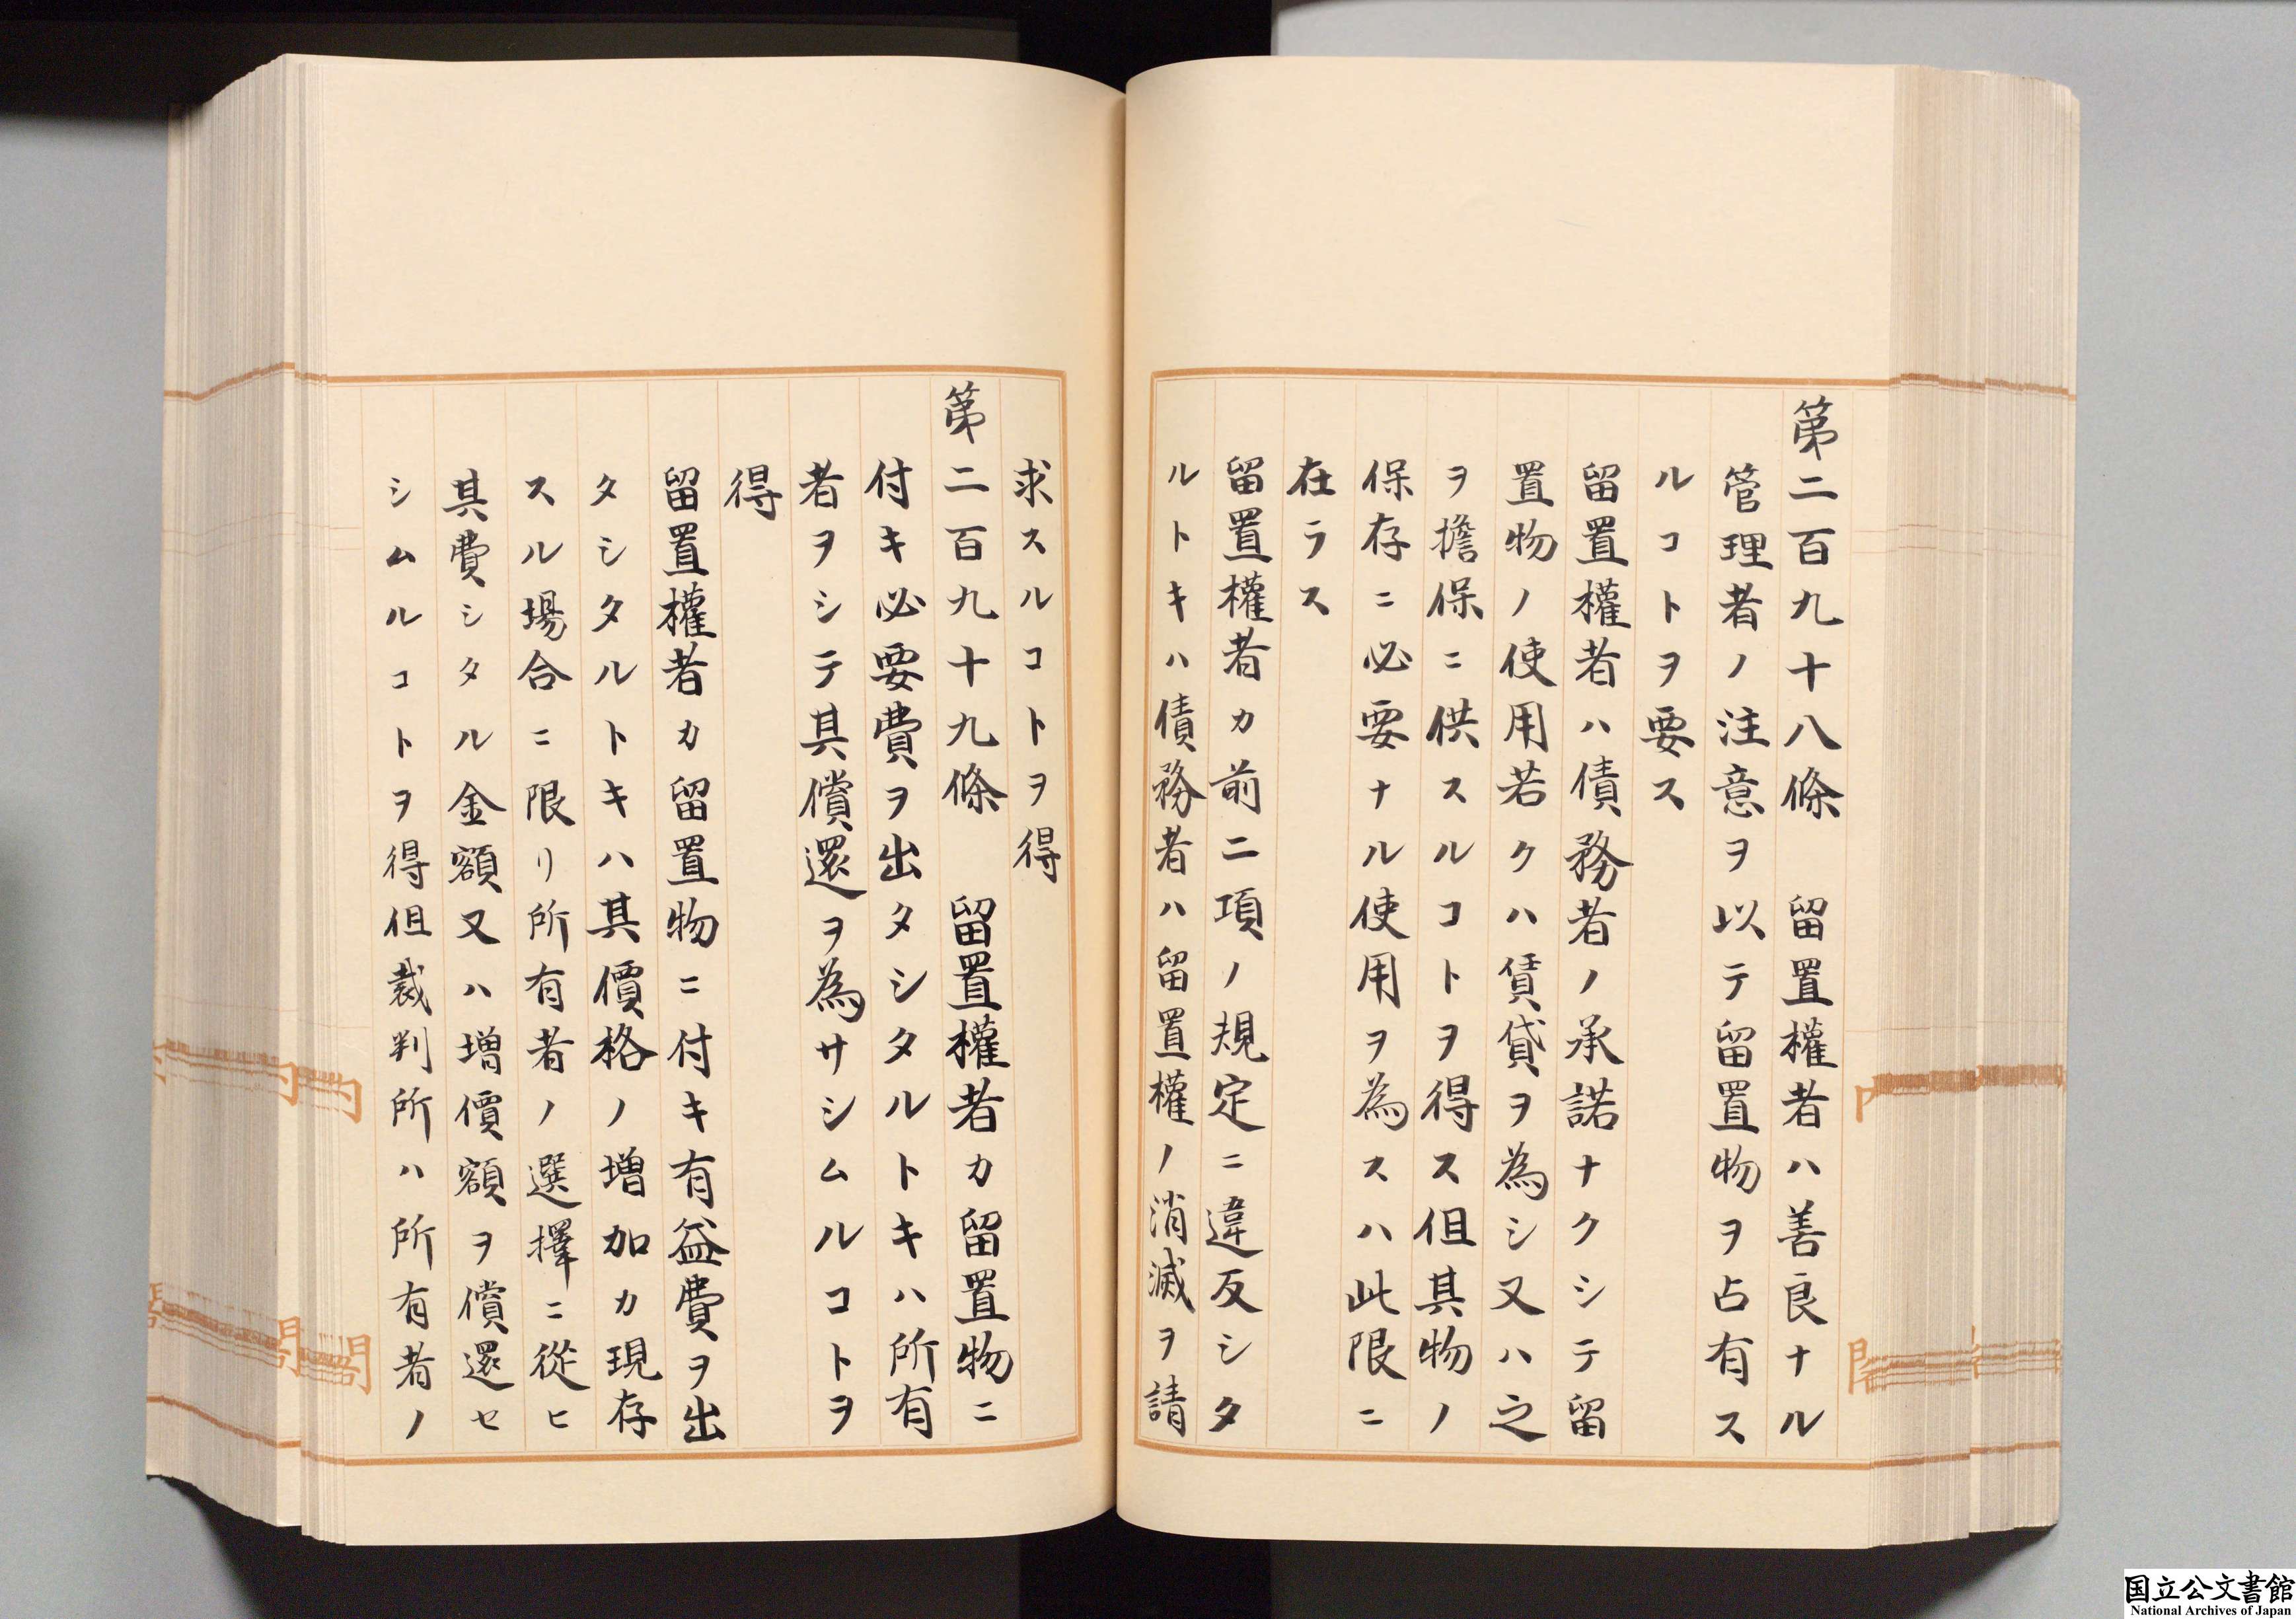 第二百九十八條　留置權者ハ善良ナル
管理者ノ注意ヲ以テ留置物ヲ占有ス
ルコトヲ要ス
留置權者ハ債務者ノ承諾ナクシテ留
置物ノ使用若クハ賃貸ヲ為シ又ハ之
ヲ擔保ニ供スルコトヲ得ス但其物ノ
保存ニ必要ナル使用ヲ為スハ此限ニ
在ラス
留置權者カ前二項ノ規定ニ違反シタ
ルトキハ債務者ハ留置權ノ消滅ヲ請
求スルコトヲ得
第二百九十九條　留置權者カ留置物ニ
付キ必要費ヲ出タシタルトキハ所有
者ヲシテ其償還ヲ為サシムルコトヲ
得
留置權者カ留置物ニ付キ有益費ヲ出
タシタルトキハ其價格ノ增加カ現存
スル場合ニ限リ所有者ノ選擇ニ從ヒ
其費シタル金額又ハ增價額ヲ償還セ
シムルコトヲ得但裁判所ハ所有者ノ
国立公文書館
National Archives of Japan